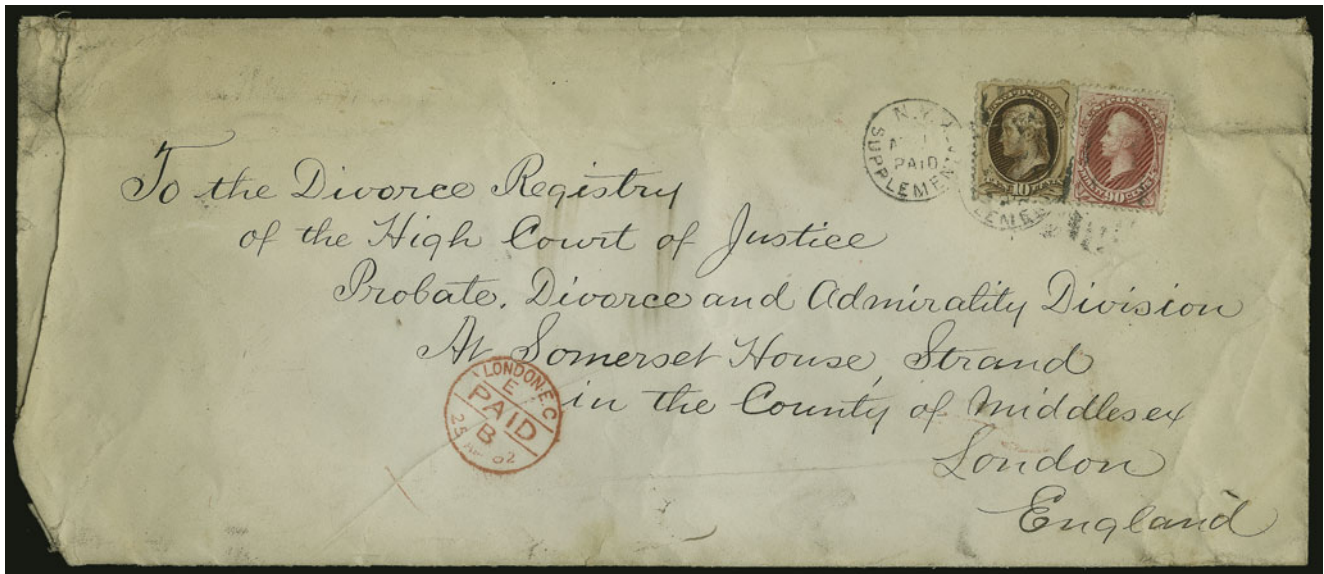 N.Y.
PAID
SUPPLEMEN
10
90
To the Divorce Registry
of the High Court of Justice
Probate. Divorce and Admirality Division
At Somerset House, Strand
in the County of Middlesex
London
England
LONDON·E.C
E
PAID
B
25 82